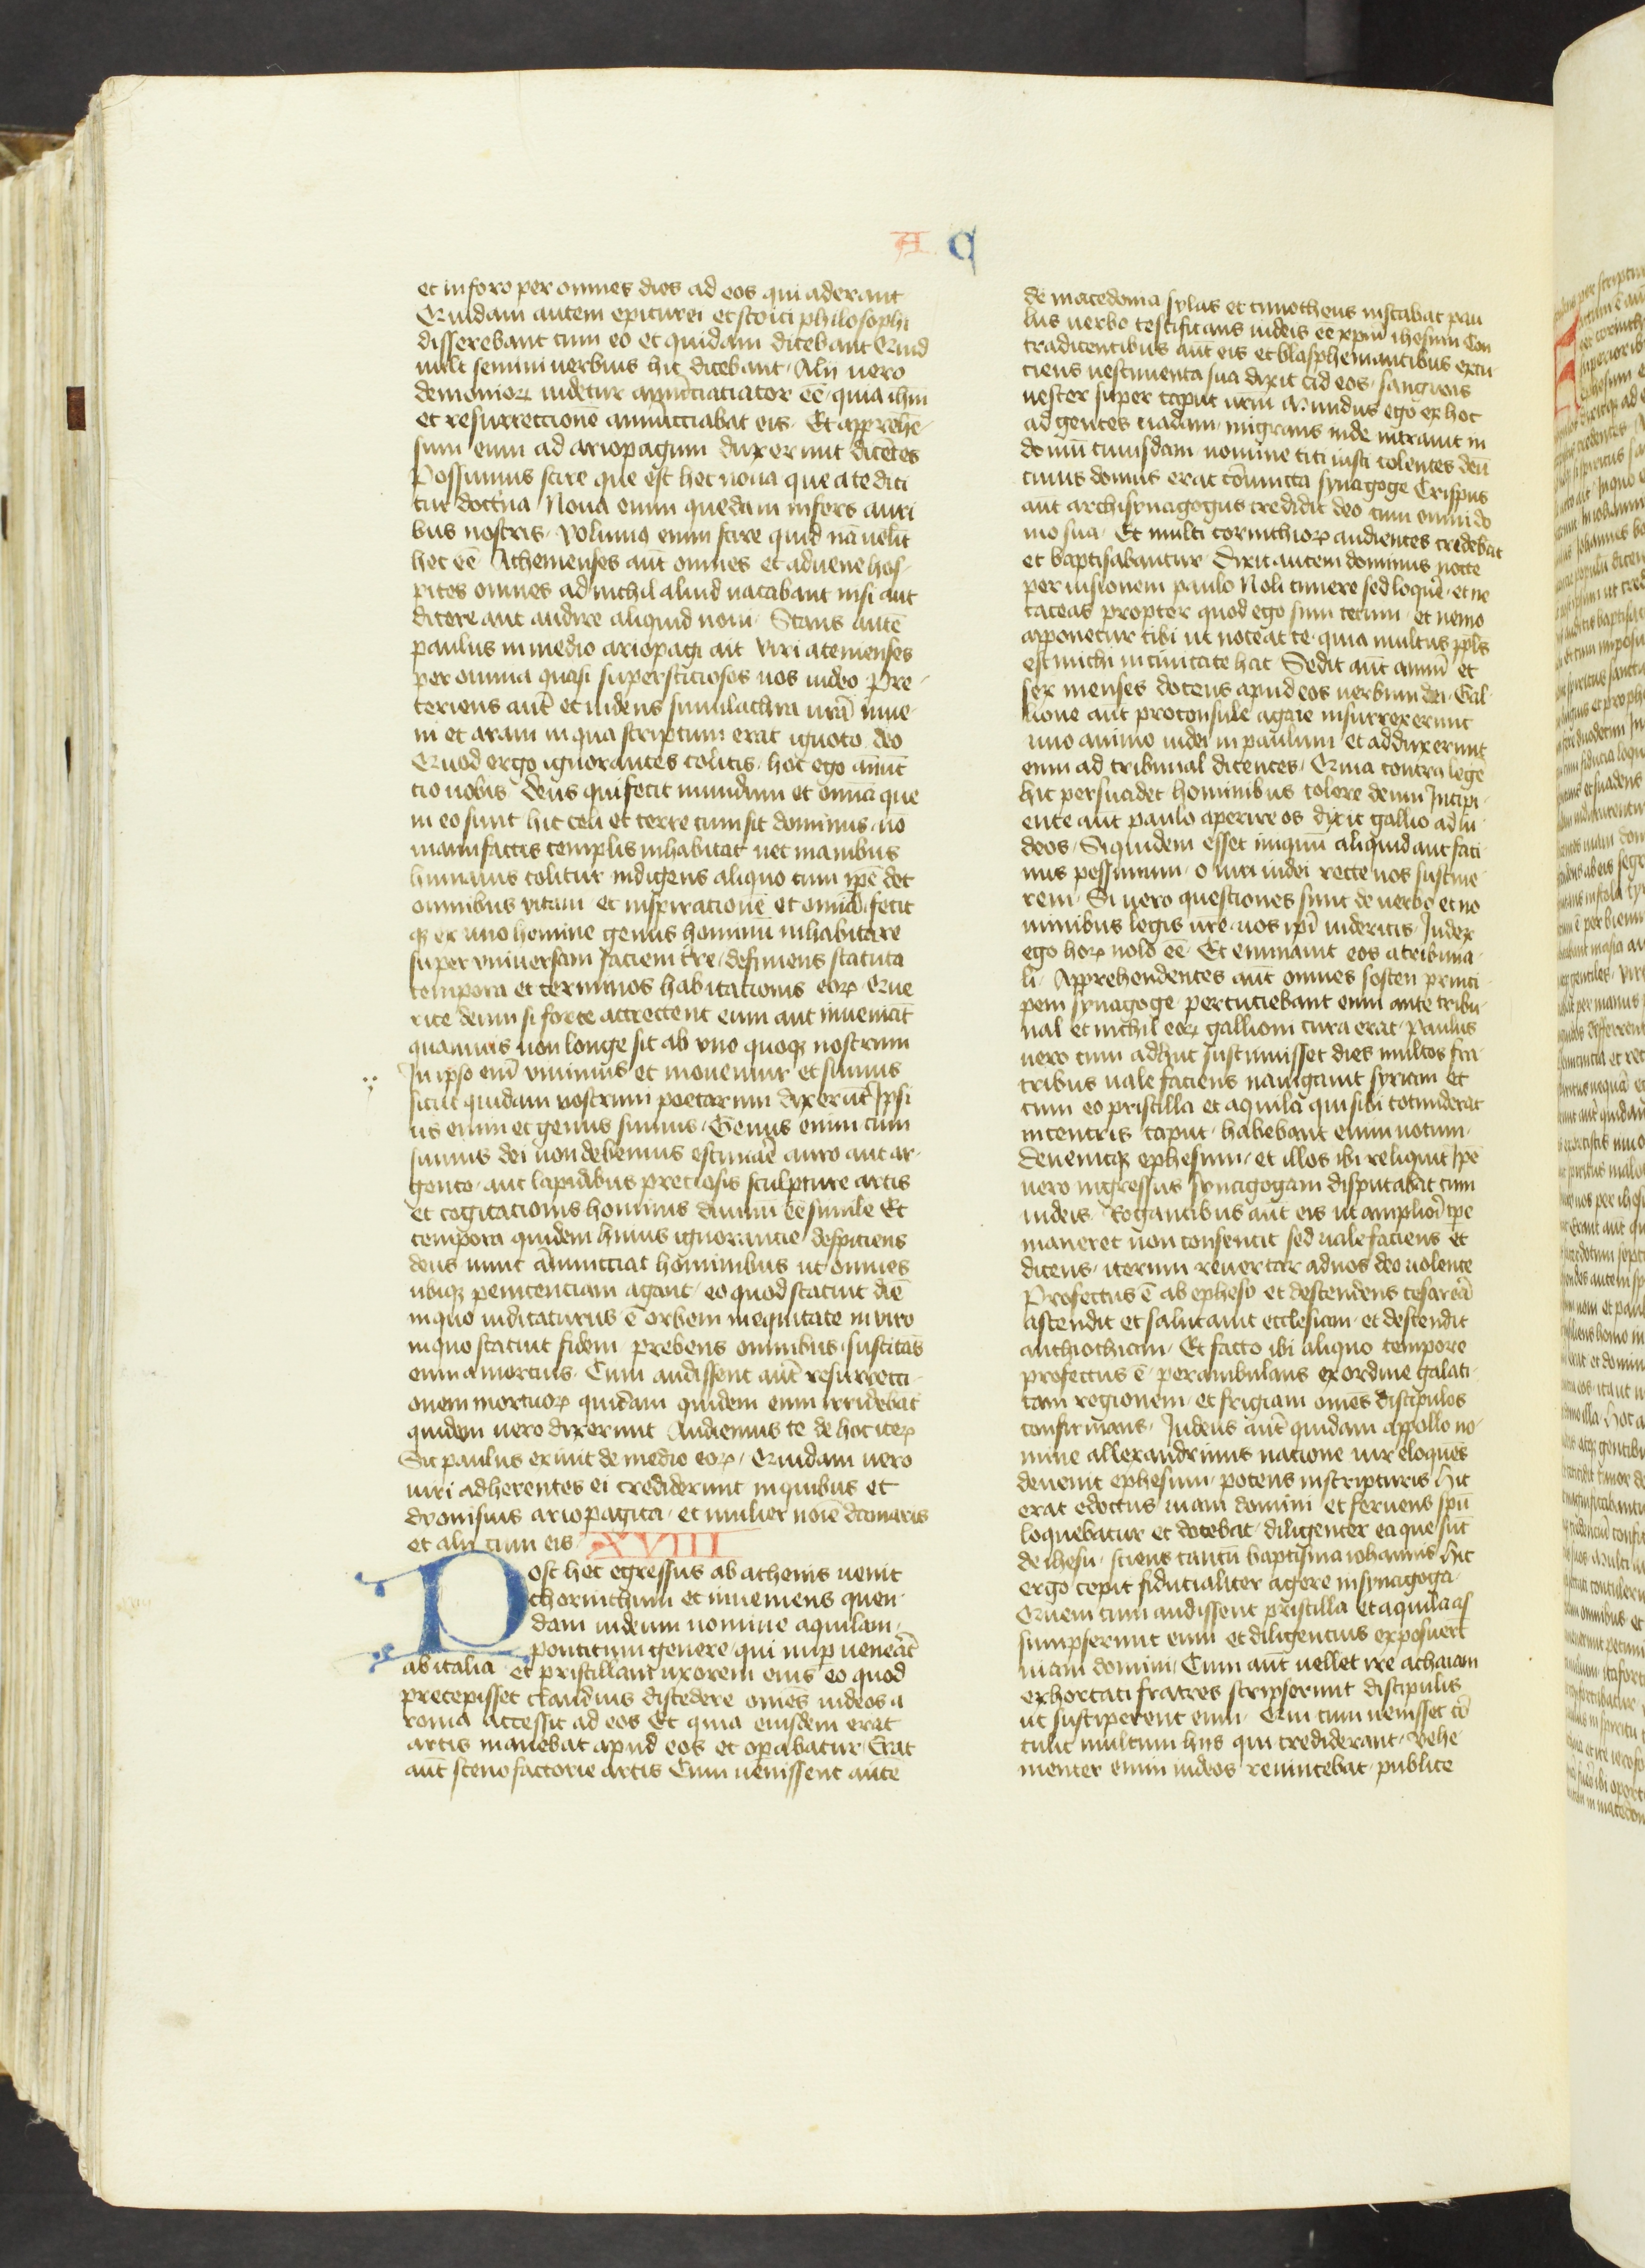 A C
et in foro per omnes dies ad eos qui aderant
Quidam autem epicurei et stoici philosophi
disserebant cum eo et quidam dicebant Quid
uult seminiuerbius hic dicebant Alij uero
demonioꝝ uidetur annūciaciator eē quia ihm̄
et resurrectionē annūcciabat eis Et apprehē
sum eum ad ariopagum duxerunt dicētes
Possumus scire que est hec noua que a te dici
tur doctīna Noua enim quedam infers auri
bus nostris volumꝰ enim scire quid nā uelīt
hec eē Athenienses aūt omnes et aduene hos
pites omnes ad nichil aliud uacabant nisi aut
dicere aut audire aliquid noui Stans autē
paulus in medio ariopagi ait Viri atenienses
per omnia quasi supersticiosos uos uideo Pre
teriens aūt et uidens simulachra urā inue
ni et aram in qua scriptum erat ignoto deo
Quod ergo ignorantes colitis hoc ego annūc
cio uobis Deus qui fecit mundum et omīa que
in eo sunt hic celi et terre cum sit dominus nō
manufactis templis inhabitat nec manibus
humanis colitur indigens aliquo cum ipē det
omnibus vitam et inspiracionē et omīa fecit
qꝫ ex uno homine genus hominū inhabitare
super vniuersam faciem tr̄e definiens statuta
tempora et terminos habitacionis eoꝝ Que
rere deum si forte attrectent eum aut inueniāt
quamuis non longe sit ab vno quoqꝫ nostrum
In ipso enī viuimus et mouemur et sumus
sicut quidam vostrum poetarum dixerūt Ipsi
us enim et genus sumus Genus enim cum
simus dei non debemus estimāre auro aut ar
gento aut lapidibus preciosis sculpture artis
et cogitacionis hominis diuinū eē simile Et
tempora quidem huius ignorancie despiciens
deus nunc ānuncciat hominibus ut omnes
ubiqꝫ penitenciam agant eo quod statuit diē
in quo iudicaturus ē orbem in equitate in viro
in quo statuit fidem prebens omnibus suscitās
eum a mortuis Cum audissent aūt resurrecti
onem mortuoꝝ quidam quidem eum irridebāt
quidem uero dixerunt Audiemus te de hoc iteꝝ
Sic paulus exiuit de medio eoꝝ Quidam uero
uiri adherentes ei crediderunt in quibus et
dyonisius ariopagita et mulier noīe damaris
et alij cum eis XVIII
Post hec egressus ab athenis uenit
chorinthum et inueniens quen
dam iudeum nomine aquilam
ponticum genere qui nuꝑ uenerāt
ab italia et priscillam uxorem eius eo quod
precepisset claudius discedere omēs iudeos a
roma accessit ad eos Et quia eiusdem erat
artis manebat apud eos et opabatur Erāt
aūt scenofactorie artis Cum uenissent autē
de macedonia sylas et timotheus instabat pau
lus uerbo testificans iudeis eē xp̄m ihesum Con
tradicentibus aūt eis et blasphemantibus excu
ciens uestimenta sua dixit ad eos sanguis
uester super caput urm̄ Mundus ego ex hoc
ad gentes uadam migrans inde intrauit in
domū cuiusdam nomine titi iusti colentes deū
cuius domus erat cōiuncta synagoge Crispus
aūt archisynagogus credidit deo cum omni do
mo sua Et multi corinthioꝝ audientes credebāt
et baptisabantur Dixit autem dominus nocte
per uisionem paulo Noli timere sed loquē et ne
taceas propter quod ego sum tecum et nemo
apponetur tibi ut noceat te quia multus ppl̄s
est michi in ciuitate hac Sedit aūt annū et
sex menses docens apud eos uerbum dei Gal
lione aūt proconsule agaie insurrexerunt
uno animo iudei in paulum et adduxerunt
eum ad tribunal dicentes Quia contra legē
hic persuadet hominibus colere deum Incipi
ente aūt paulo aperire os dixit gallio ad iu
deos Siquidem esset iniquū aliquid aut faci
nus pessimum o uiri iudei recte uos sustine
rem Si uero questiones sunt de uerbo et no
minibus legis ur̄e uos ipī uideritis Iudex
ego hoꝝ nolo eē Et eminauit eos a tribuna
li Apprehendentes aūt omnes sosten princi
pem synagoge percuciebant eum ante tribu
nal et nichil eoꝝ gallioni cura erat Paulus
uero cum adhuc sustinuisset dies multos fra
tribus uale faciens nauigauit syriam et
cum eo priscilla et aquila qui sibi totunderat
in cencris caput habebant enim uotum
Deuenitqꝫ ephesum et illos ibi reliquit Ipē
uero ingressus synagogam disputabat cum
iudeis Rogantibus aūt eis ut ampliorī tp̄e
maneret non consencit sed uale faciens et
dicens iterum reuertar ad uos deo uolente
Profectus ē ab epheso et descendens cesareā
ascendit et salutauit ecclesiam et descendit
anthiochiam Et facto ibi aliquo tempore
profectus ē perambulans ex ordine galati
cam regionem et frigiam omēs discipulos
confirmans Iudeus aūt quidam appollo no
mine allexandrinus nacione uir eloquēs
deuenit ephesum potens in scripturis Hic
erat edoctus uiam domini et feruens spū
loquebatur et docebat diligenter ea que sūt
de ihesu sciens tantū baptisma iohannis Hic
ergo cepit fiducialiter agere in synagoga
Quem cum audissent priscilla et aquila as
sumpserunt eum et diligencius exposuerūt
uiam domini Cum aūt uellet ire achaiam
exhortati fratres scripserunt discipulis
ut susciperent eum Qui cum uenisset cō
tulit multum hijs qui crediderant Vehe
menter enim iudeos reuincebat publice